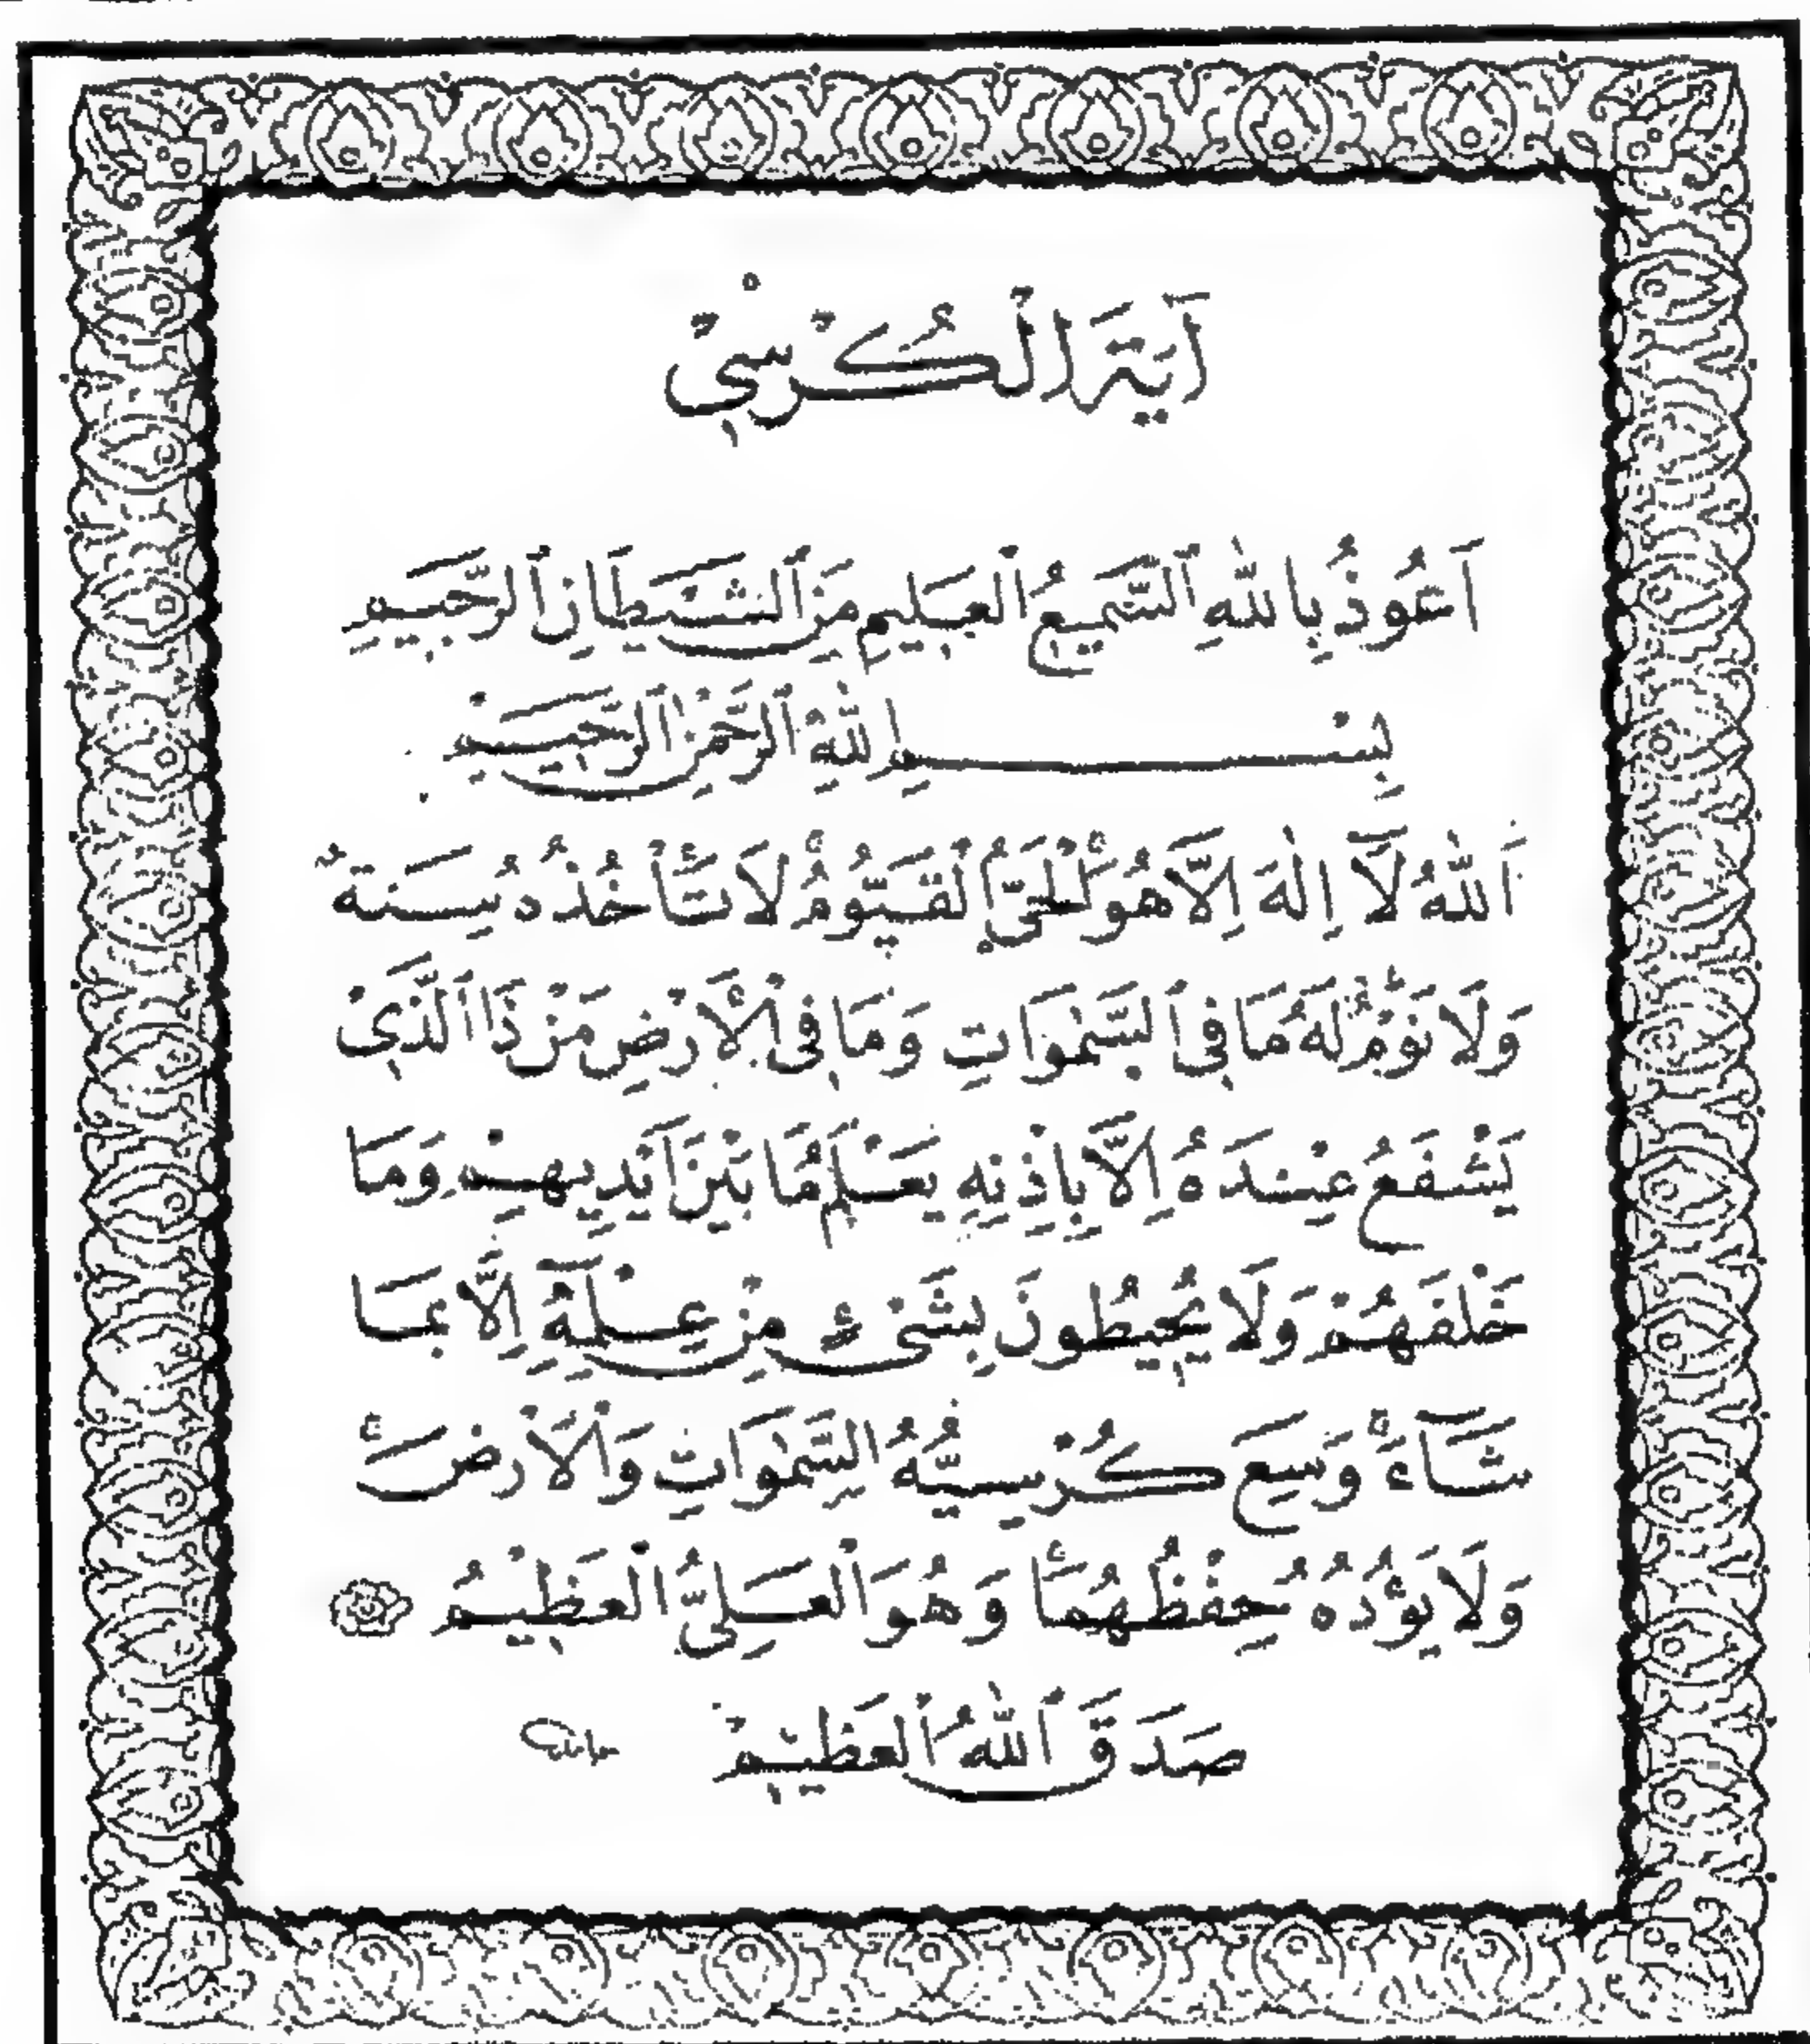 آيَةَ الْكُرْسِيْ
اَعُوذُ بِاللهِ ٱلسَّمِيعُ ٱلْعَلِيمِ مِنَ ٱلشَّيْطَانِ ٱلرَّجِيمِ
بِسْــــــمِ اللهِ ٱلرَّحْمٰنِ ٱلرَّحِيمِ
اَللهُ لَآ اِلٰهَ اِلَّا هُوَ ۚ اَلْحَىُّ الْقَيُّومُ ۚ لَا تَأْخُذُهُ سِنَةٌ
وَلَا نَوْمٌ ۚ لَهُ مَا فِى السَّمٰوَاتِ وَمَا فِى الْاَرْضِ ۚ مَنْ ذَا الَّذِىْ
يَشْفَعُ عِنْدَهُ اِلَّا بِاِذْنِهِ يَعْلَمُ مَا بَيْنَ اَيْدِيهِمْ وَمَا
خَلْفَهُمْ وَلَا يُحِيطُونَ بِشَىْءٍ مِنْ عِلْمِهٓ اِلَّا بِمَا
شَآءَ ۚ وَسِعَ كُرْسِيُّهُ السَّمٰوَاتِ وَالْاَرْضَ ۚ
وَلَا يَؤُدُهُ حِفْظُهُمَا ۚ وَهُوَ الْعَلِىُّ الْعَظِيْمُ
صَدَقَ ٱللهُ ٱلْعَظِيْمْ